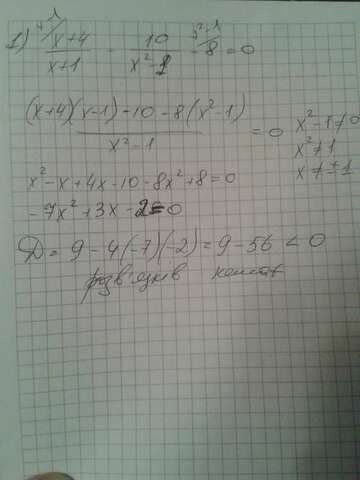 1) x+4/x+1 - 10/x²-1 - 8 = 0
(x+4)(x-1)-10-8(x²-1)/x²-1 = 0
x²-1≠0
x²≠1
x≠±1
x²-x+4x-10-8x²+8=0
-7x²+3x-2=0
D = 9-4(-7)(-2) = 9-56 < 0
розв'язків немає